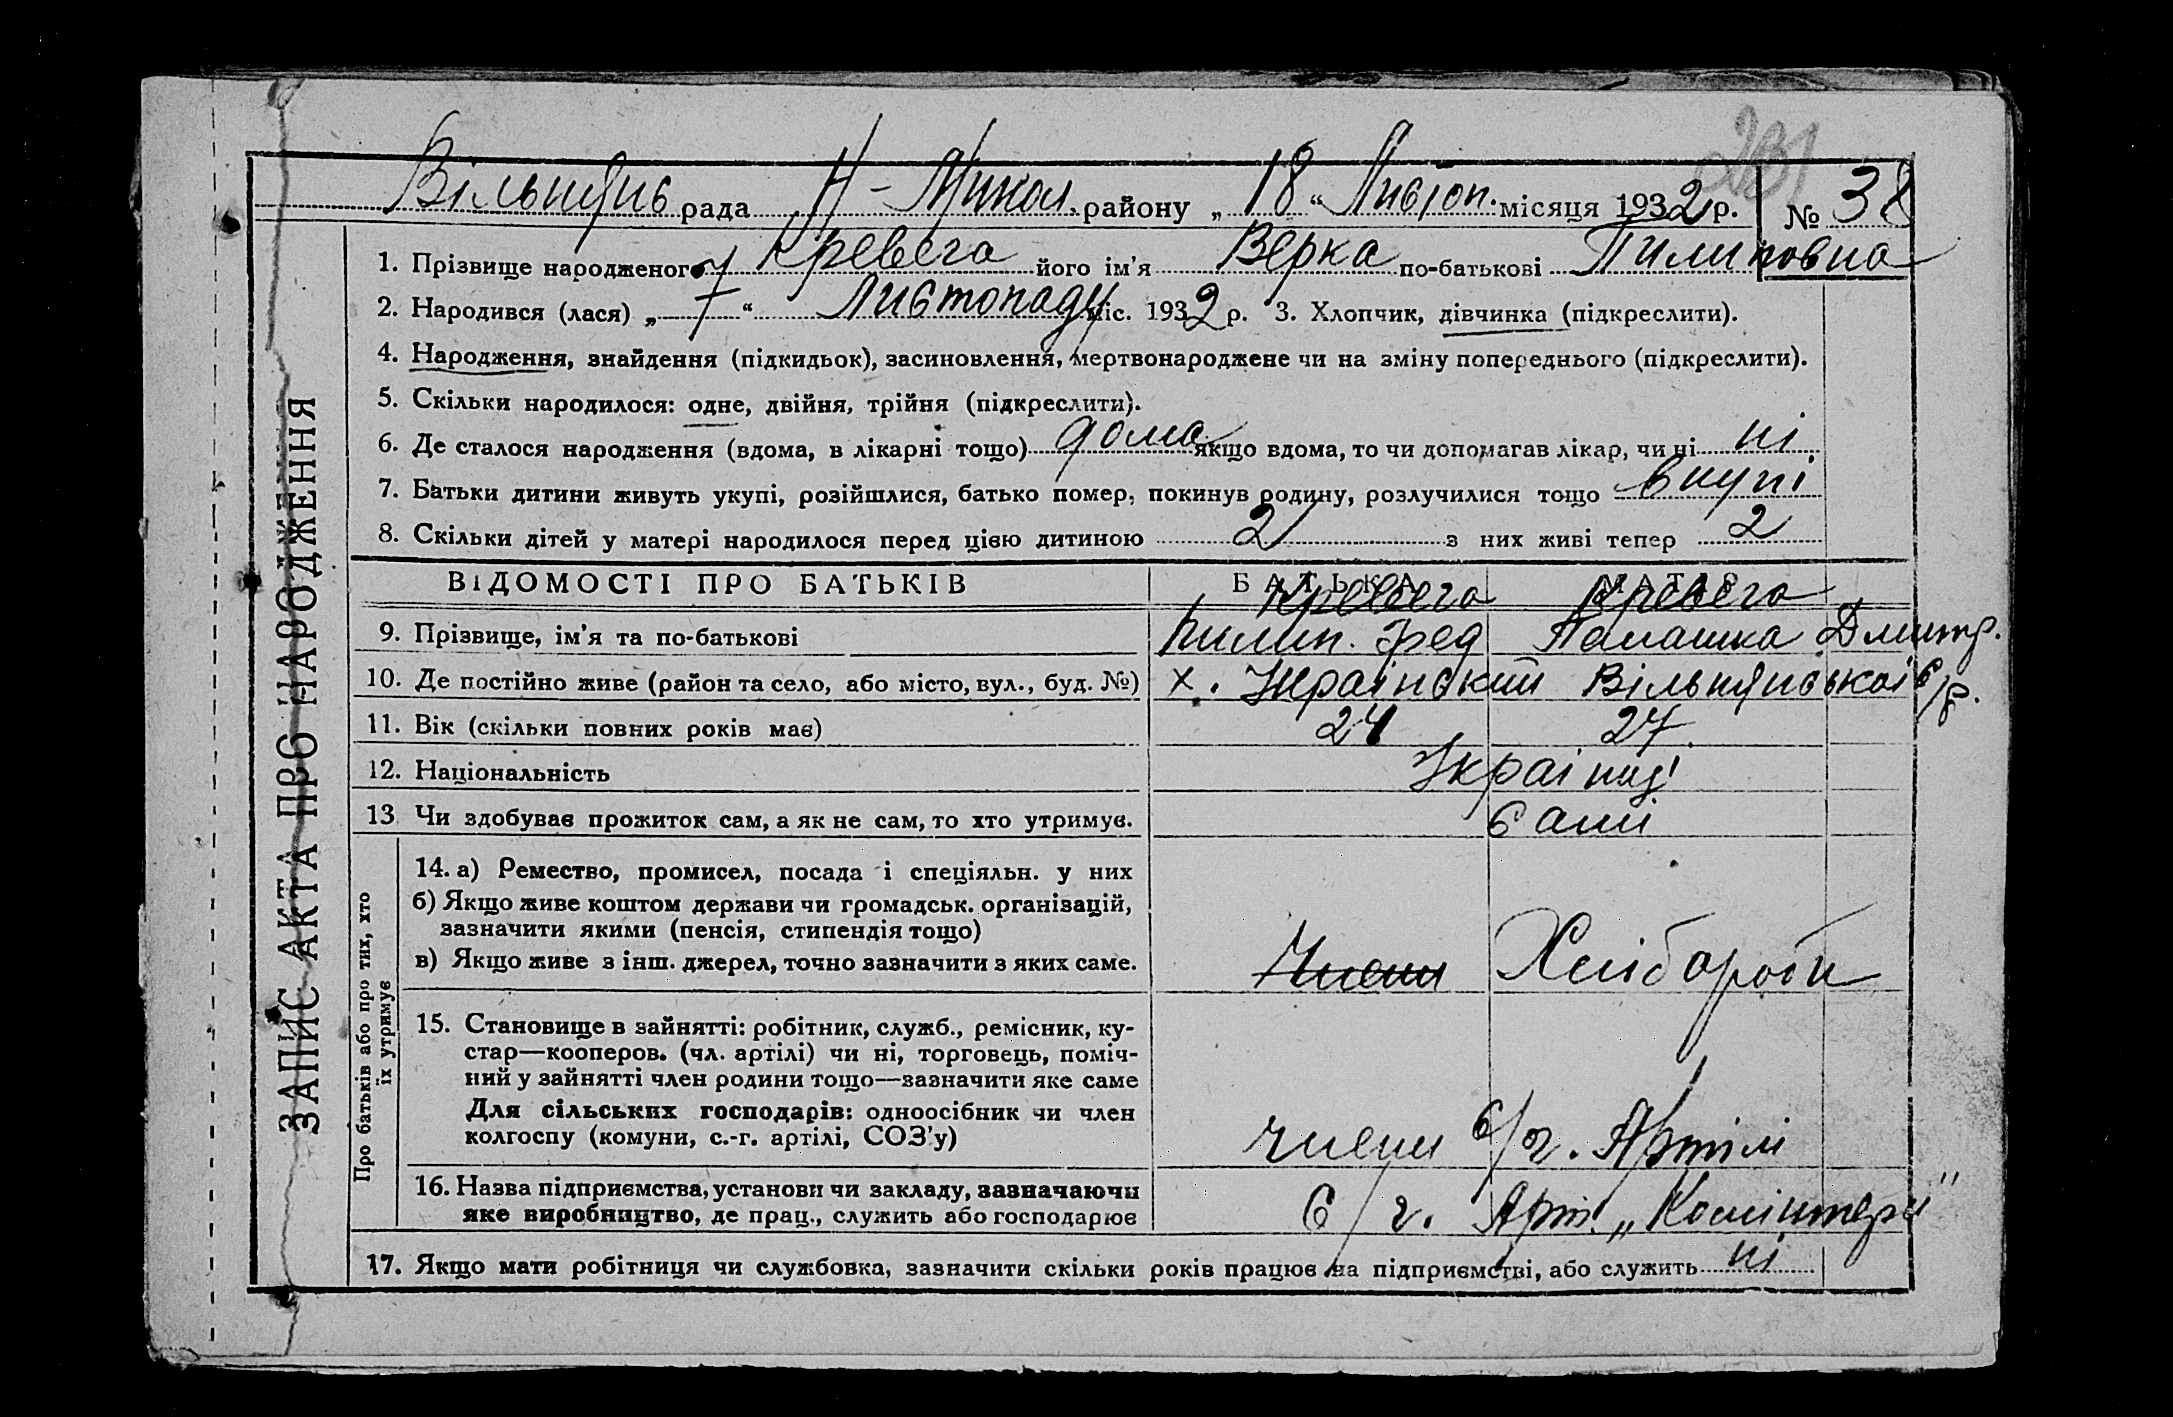 231
Вільнянс рада Н-Микол. району „ 18 “ Листоп. місяця 1932 р. № 38
1. Прізвище народженого Кревега його ім’я Верка по-батькові Пилиповна
2. Народився (лася) „ 7 “ Листопаду міс. 1932 р. 3. Хлопчик, дівчинка (підкреслити).
4. Народження, знайдення (підкидьок), засиновлення, мертвонароджене чи на зміну попереднього (підкреслити).
5. Скільки народилося: одне, двійня, трійня (підкреслити).
6. Де сталося народження (вдома, в лікарні тощо) дома якщо вдома, то чи допомагав лікар, чи ні ні
7. Батьки дитини живуть укупі, розійшлися, батько помер, покинув родину, розлучилися тощо вкупі
8. Скільки дітей у матері народилося перед цією дитиною 2 з них живі тепер 2
ВІДОМОСТІ ПРО БАТЬКІВ БАТЬКА МАТЕР
Кревега Кревега
9. Прізвище, ім’я та по-батькові Пилип. Фед Палашка Дмитр.
10. Де постійно живе (район та село, або місто, вул., буд. №) х. Український Вільнянської с/р.
11. Вік (скільки повних років має) 24 27
12. Національність Українці
13 Чи здобуває прожиток сам, а як не сам, то хто утримує. Самі
14. а) Ремество, промисел, посада і спеціяльн. у них
б) Якщо живе коштом держави чи громадськ. організацій,
зазначити якими (пенсія, стипендія тощо)
в) Якщо живе з інш. джерел, точно зазначити з яких саме. Члени Хлібороби
15. Становище в зайнятті: робітник, служб., ремісник, ку-
стар—кооперов. (чл. артілі) чи ні, торговець, поміч-
ний у зайнятті член родини тощо—зазначити яке саме
Для сільських господарів: одноосібник чи член
колгоспу (комуни, с.-г. артілі, СОЗ’у) члени с/г. Артілі
16. Назва підприємства, установи чи закладу, зазначаючи
яке виробництво, де прац., служить або господарює с/г. Арт. „Комінтерн“
17. Якщо мати робітниця чи службовка, зазначити скільки років працює на підприємстві, або служить ні
ЗАПИС АКТА ПРО НАРОДЖЕННЯ
Про батьків або про тих, хто
їх утримує